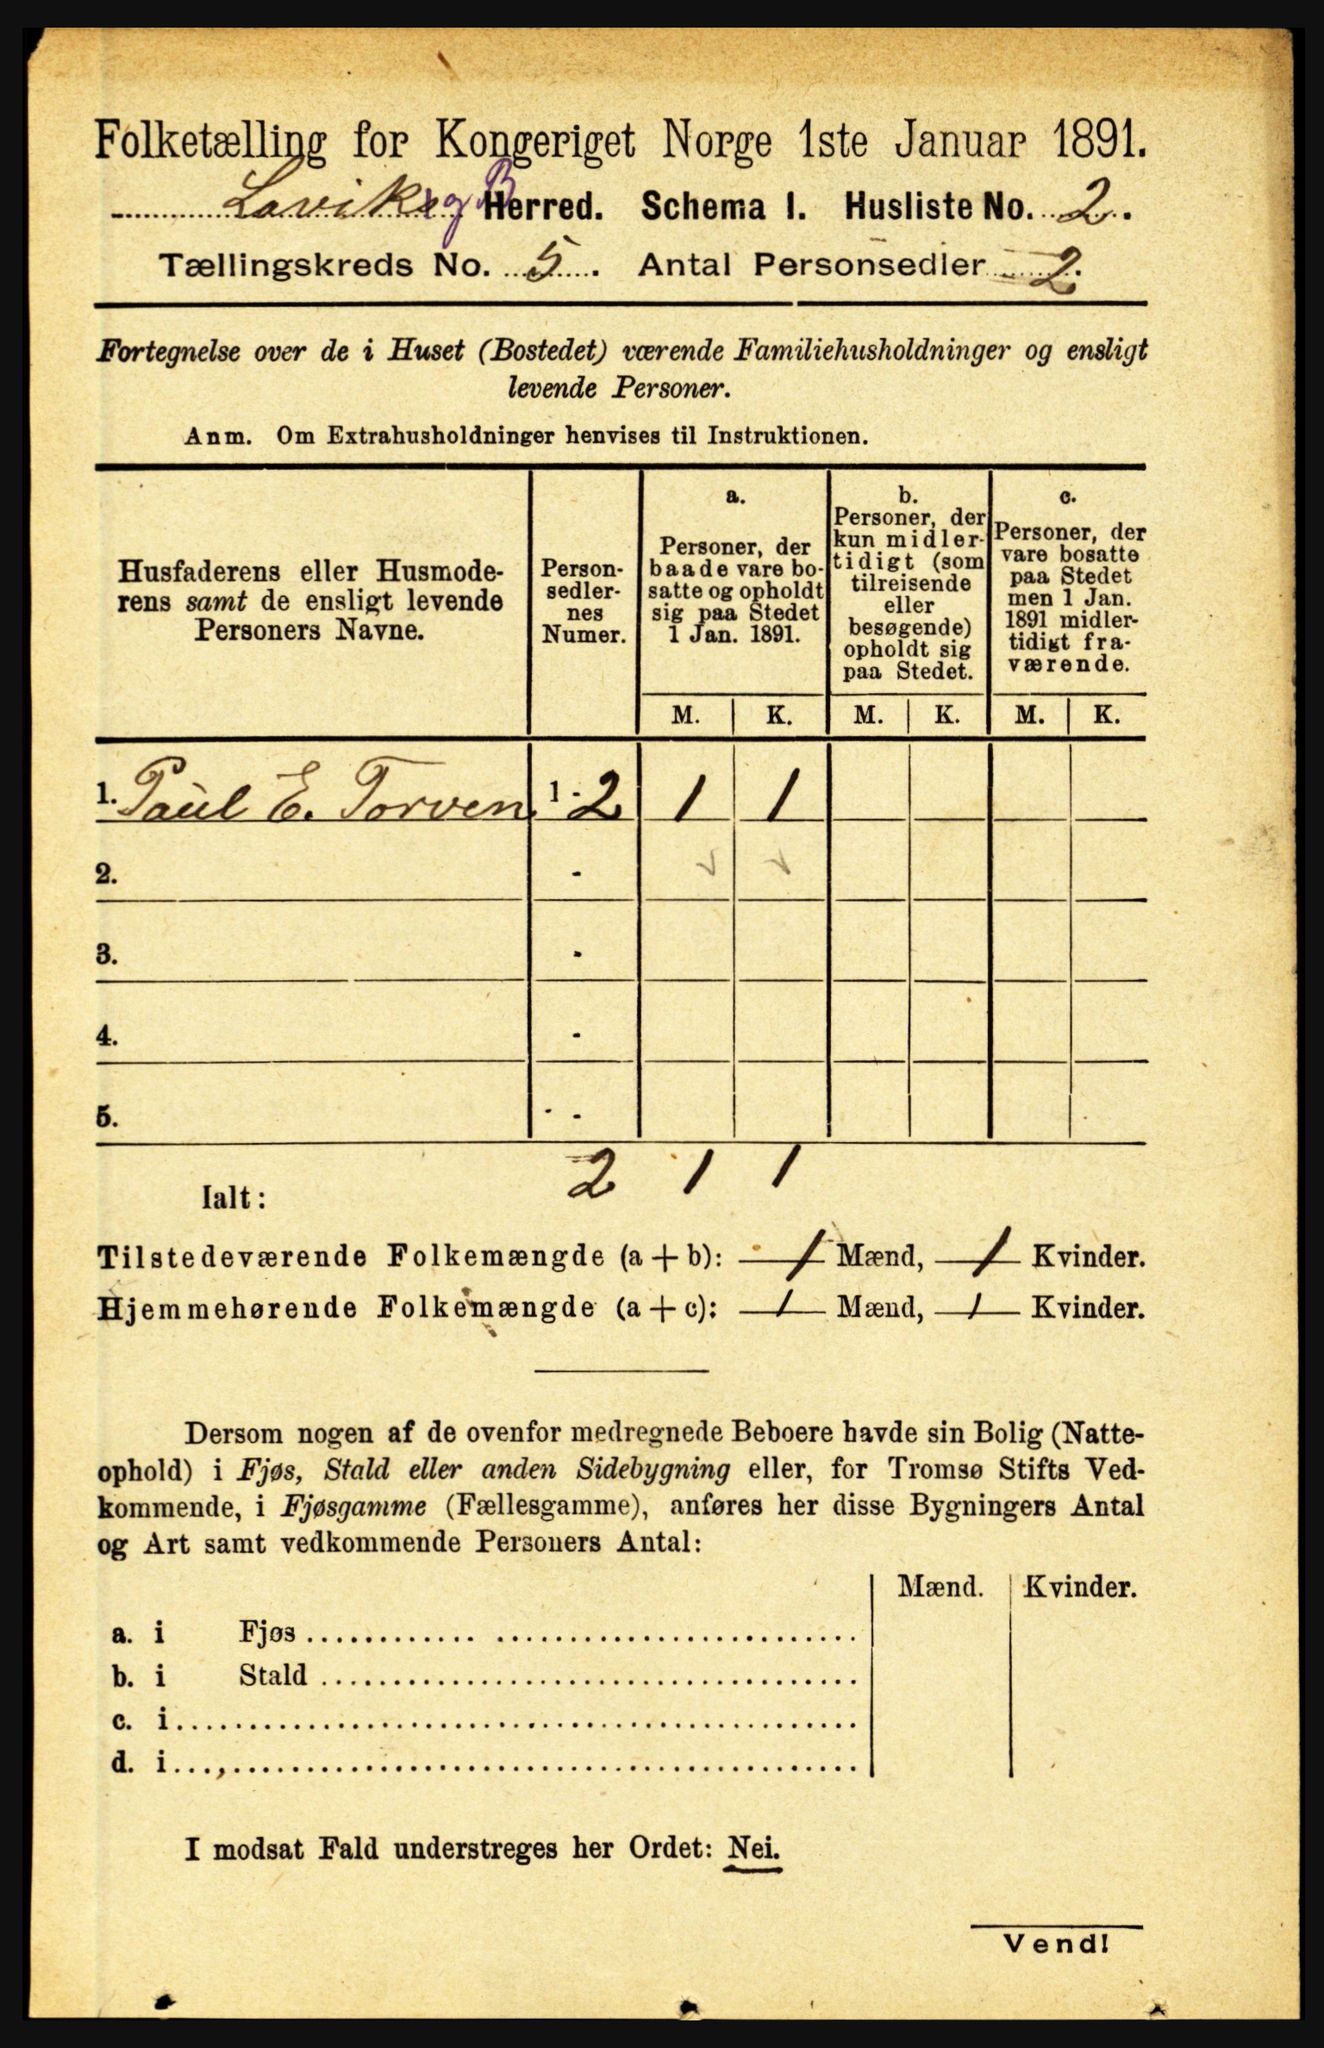 Folketælling for Kongeriget Norge 1ste Januar 1891.
Lavik og B Herred. Schema I. Husliste No. 2.
Tællingskreds No. 5. Antal Personsedler 2.
Fortegnelse over de i Huset (Bostedet) værende Familiehusholdninger og ensligt
levende Personer.
Anm. Om Extrahusholdninger henvises til Instruktionen.
Husfaderens eller Husmode-
rens samt de ensligt levende
Personers Navne.
Person-
sedler-
nes
Numer.
a.
Personer, der
baade vare bo-
satte og opholdt
sig paa Stedet
1 Jan. 1891.
b.
Personer, der
kun midler-
tidigt (som
tilreisende
eller
besøgende)
opholdt sig
paa Stedet.
c.
Personer, der
vare bosatte
paa Stedet
men 1 Jan.
1891 midler-
tidigt fra-
værende.
M. K. M. K. M. K.
1. Paul E. Torven 1 - 2 1 1
2. -
3. -
4. -
5. -
2 1 1
Ialt:
Tilstedeværende Folkemængde (a + b): 1 Mænd, 1 Kvinder.
Hjemmehørende Folkemængde (a + c): 1 Mænd, 1 Kvinder.
Dersom nogen af de ovenfor medregnede Beboere havde sin Bolig (Natte-
ophold) i Fjøs, Stald eller anden Sidebygning eller, for Tromsø Stifts Ved-
kommende, i Fjøsgamme (Fællesgamme), anføres her disse Bygningers Antal
og Art samt vedkommende Personers Antal:
Mænd. Kvinder.
a. i Fjøs
b. i Stald
c. i
d. i
I modsat Fald understreges her Ordet: Nei.
Vend!